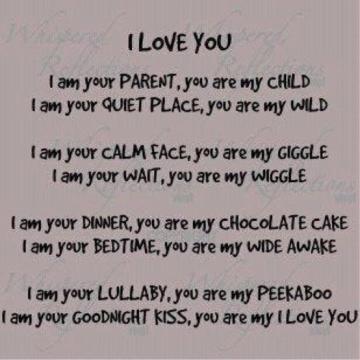 I LOVE YOU
I am your PARENT, you are my CHILD
I am your QUIET PLACE, you are my WILD
I am your CALM FACE, you are my GIGGLE
I am your WAIT, you are my WIGGLE
I am your DINNER, you are my CHOCOLATE CAKE
I am your BEDTIME, you are my WIDE AWAKE
I am your LULLABY, you are my PEEKABOO
I am your GOODNIGHT KISS, you are my I LOVE YOU
Whispered
Reflections